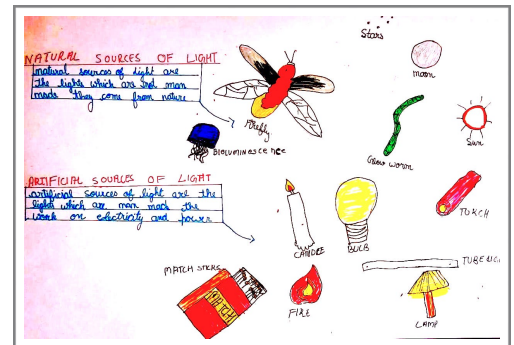 Stars
NATURAL SOURCES OF LIGHT
natural sources of light are
the lights which are not man
made they come from nature
moon
Firefly
BIOLUMINESCENCE
Glow worm
Sun
ARTIFICIAL SOURCES OF LIGHT
artificial sources of light are the
lights which are man made the
work on electricity and power
TORCH
CANDLE
BULB
MATCH STICKS
MATCH
FIRE
LAMP